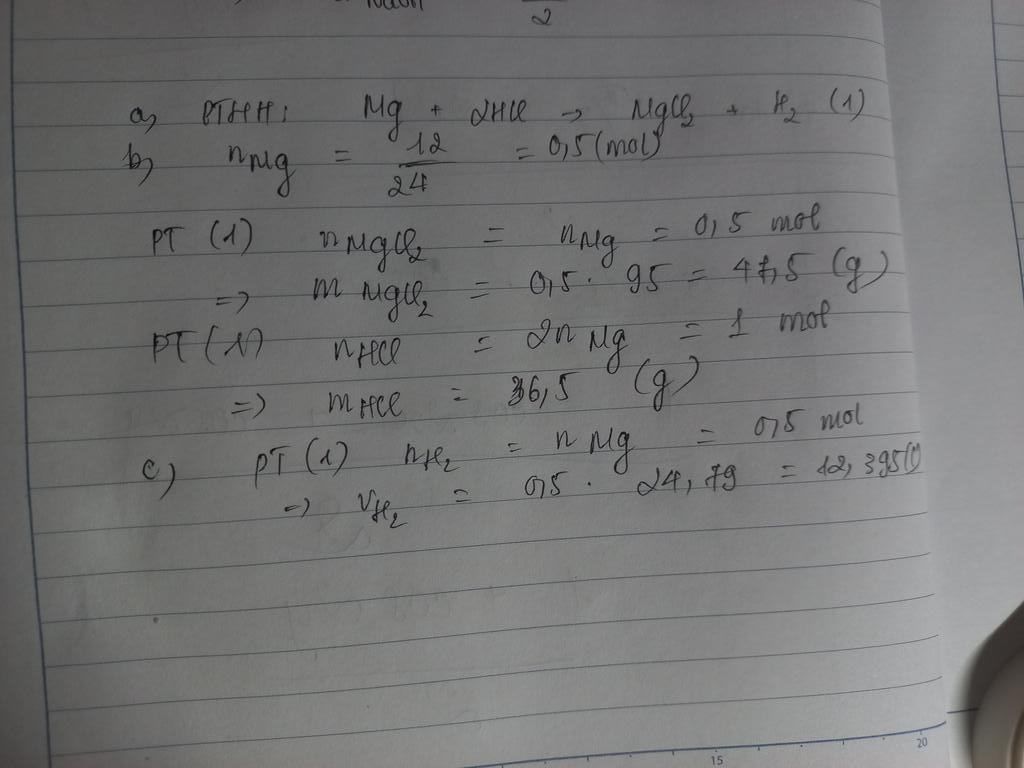 2
a, PTHH: Mg + 2HCl → MgCl₂ + H₂ (1)
b, nMg = 12/24 = 0,5 (mol)
PT (1) nMgCl₂ = nMg = 0,5 mol
=> mMgCl₂ = 0,5 . 95 = 47,5 (g)
PT (1) nHCl = 2nMg = 1 mol
=> mHCl = 36,5 (g)
c, PT (1) nH₂ = nMg = 0,5 mol
=> VH₂ = 0,5 . 24,79 = 12,395 (l)
15 20